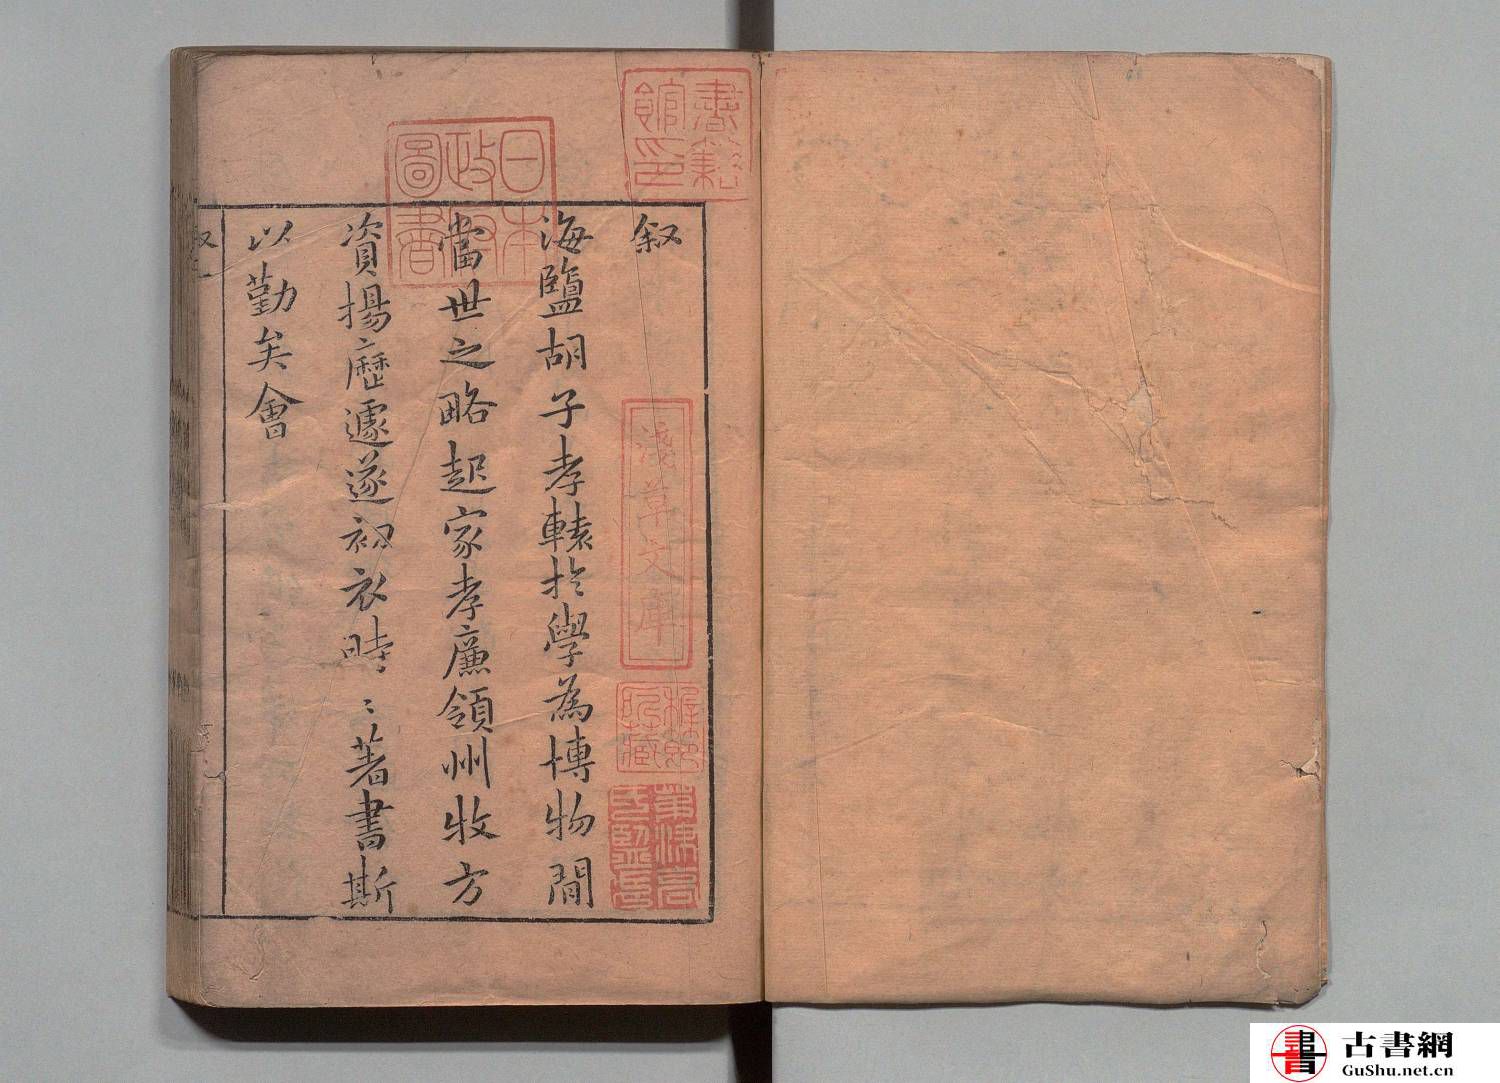 叙
海鹽胡子孝轅於學為博物閒
當世之略起家孝廉領州牧方
資揚歷遽遂初衣時〻著書斯
以勤矣會
叙
一
書籍
館印
日本
政府
圖書
淺草文庫
古書網
GuShu.net.cn